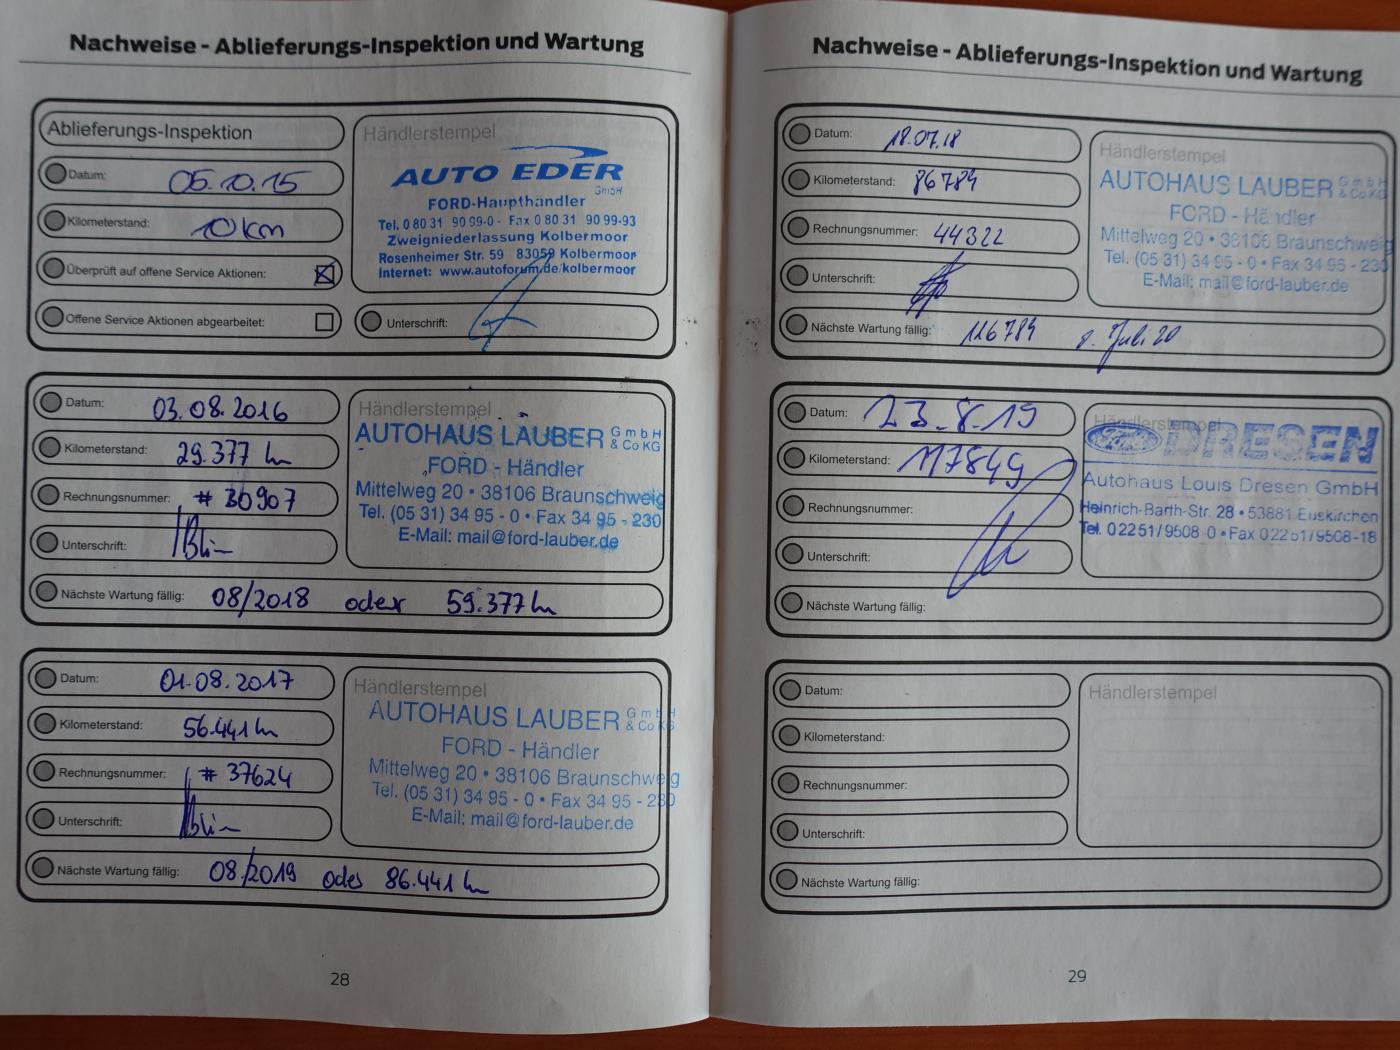 Nachweise - Ablieferungs-Inspektion und Wartung
Ablieferungs-Inspektion
Datum: 05.10.15
Kilometerstand: 10 km
Überprüft auf offene Service Aktionen:
Offene Service Aktionen abgearbeitet:
Händlerstempel
AUTO EDER
GmbH
FORD-Haupthändler
Tel. 0 80 31 90 99-0 - Fax 0 80 31 90 99-93
Zweigniederlassung Kolbermoor
Rosenheimer Str. 59 83059 Kolbermoor
Internet: www.autoforum.de/kolbermoor
Unterschrift:
Datum: 03.08.2016
Kilometerstand: 29.377 km
Rechnungsnummer: # 30907
Unterschrift:
Händlerstempel
AUTOHAUS LAUBER GmbH & Co KG
FORD - Händler
Mittelweg 20 • 38106 Braunschweig
Tel. (05 31) 34 95 - 0 • Fax 34 95 - 230
E-Mail: mail@ford-lauber.de
Nächste Wartung fällig: 08/2018 oder 59.377 km
Datum: 01.08.2017
Kilometerstand: 56.441 km
Rechnungsnummer: # 37624
Unterschrift:
Händlerstempel
AUTOHAUS LAUBER GmbH & Co KG
FORD - Händler
Mittelweg 20 • 38106 Braunschweig
Tel. (05 31) 34 95 - 0 • Fax 34 95 - 230
E-Mail: mail@ford-lauber.de
Nächste Wartung fällig: 08/2019 oder 86.441 km
28
Nachweise - Ablieferungs-Inspektion und Wartung
Datum: 18.07.18
Kilometerstand: 86784
Rechnungsnummer: 44322
Unterschrift:
Händlerstempel
AUTOHAUS LAUBER GmbH & Co KG
FORD - Händler
Mittelweg 20 • 38106 Braunschweig
Tel. (05 31) 34 95 - 0 • Fax 34 95 - 230
E-Mail: mail@ford-lauber.de
Nächste Wartung fällig: 116784 o. Juli 20
Datum: 23.8.19
Kilometerstand: 117849
Rechnungsnummer:
Unterschrift:
Händlerstempel
Ford DRESEN
Autohaus Louis Dresen GmbH
Heinrich-Barth-Str. 28 • 53881 Euskirchen
Tel. 02251/9508-0 • Fax 02251/9508-18
Nächste Wartung fällig:
Datum:
Kilometerstand:
Rechnungsnummer:
Unterschrift:
Händlerstempel
Nächste Wartung fällig:
29